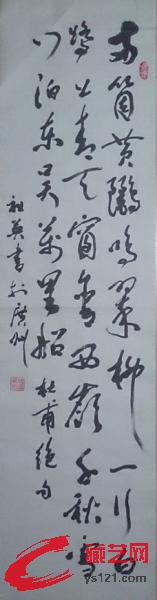 两箇黄鹂鸣翠柳一行白
鹭上青天窗含西岭千秋雪
门泊东吴万里船 杜甫绝句
社英书于广州
藏艺网
ys121.com